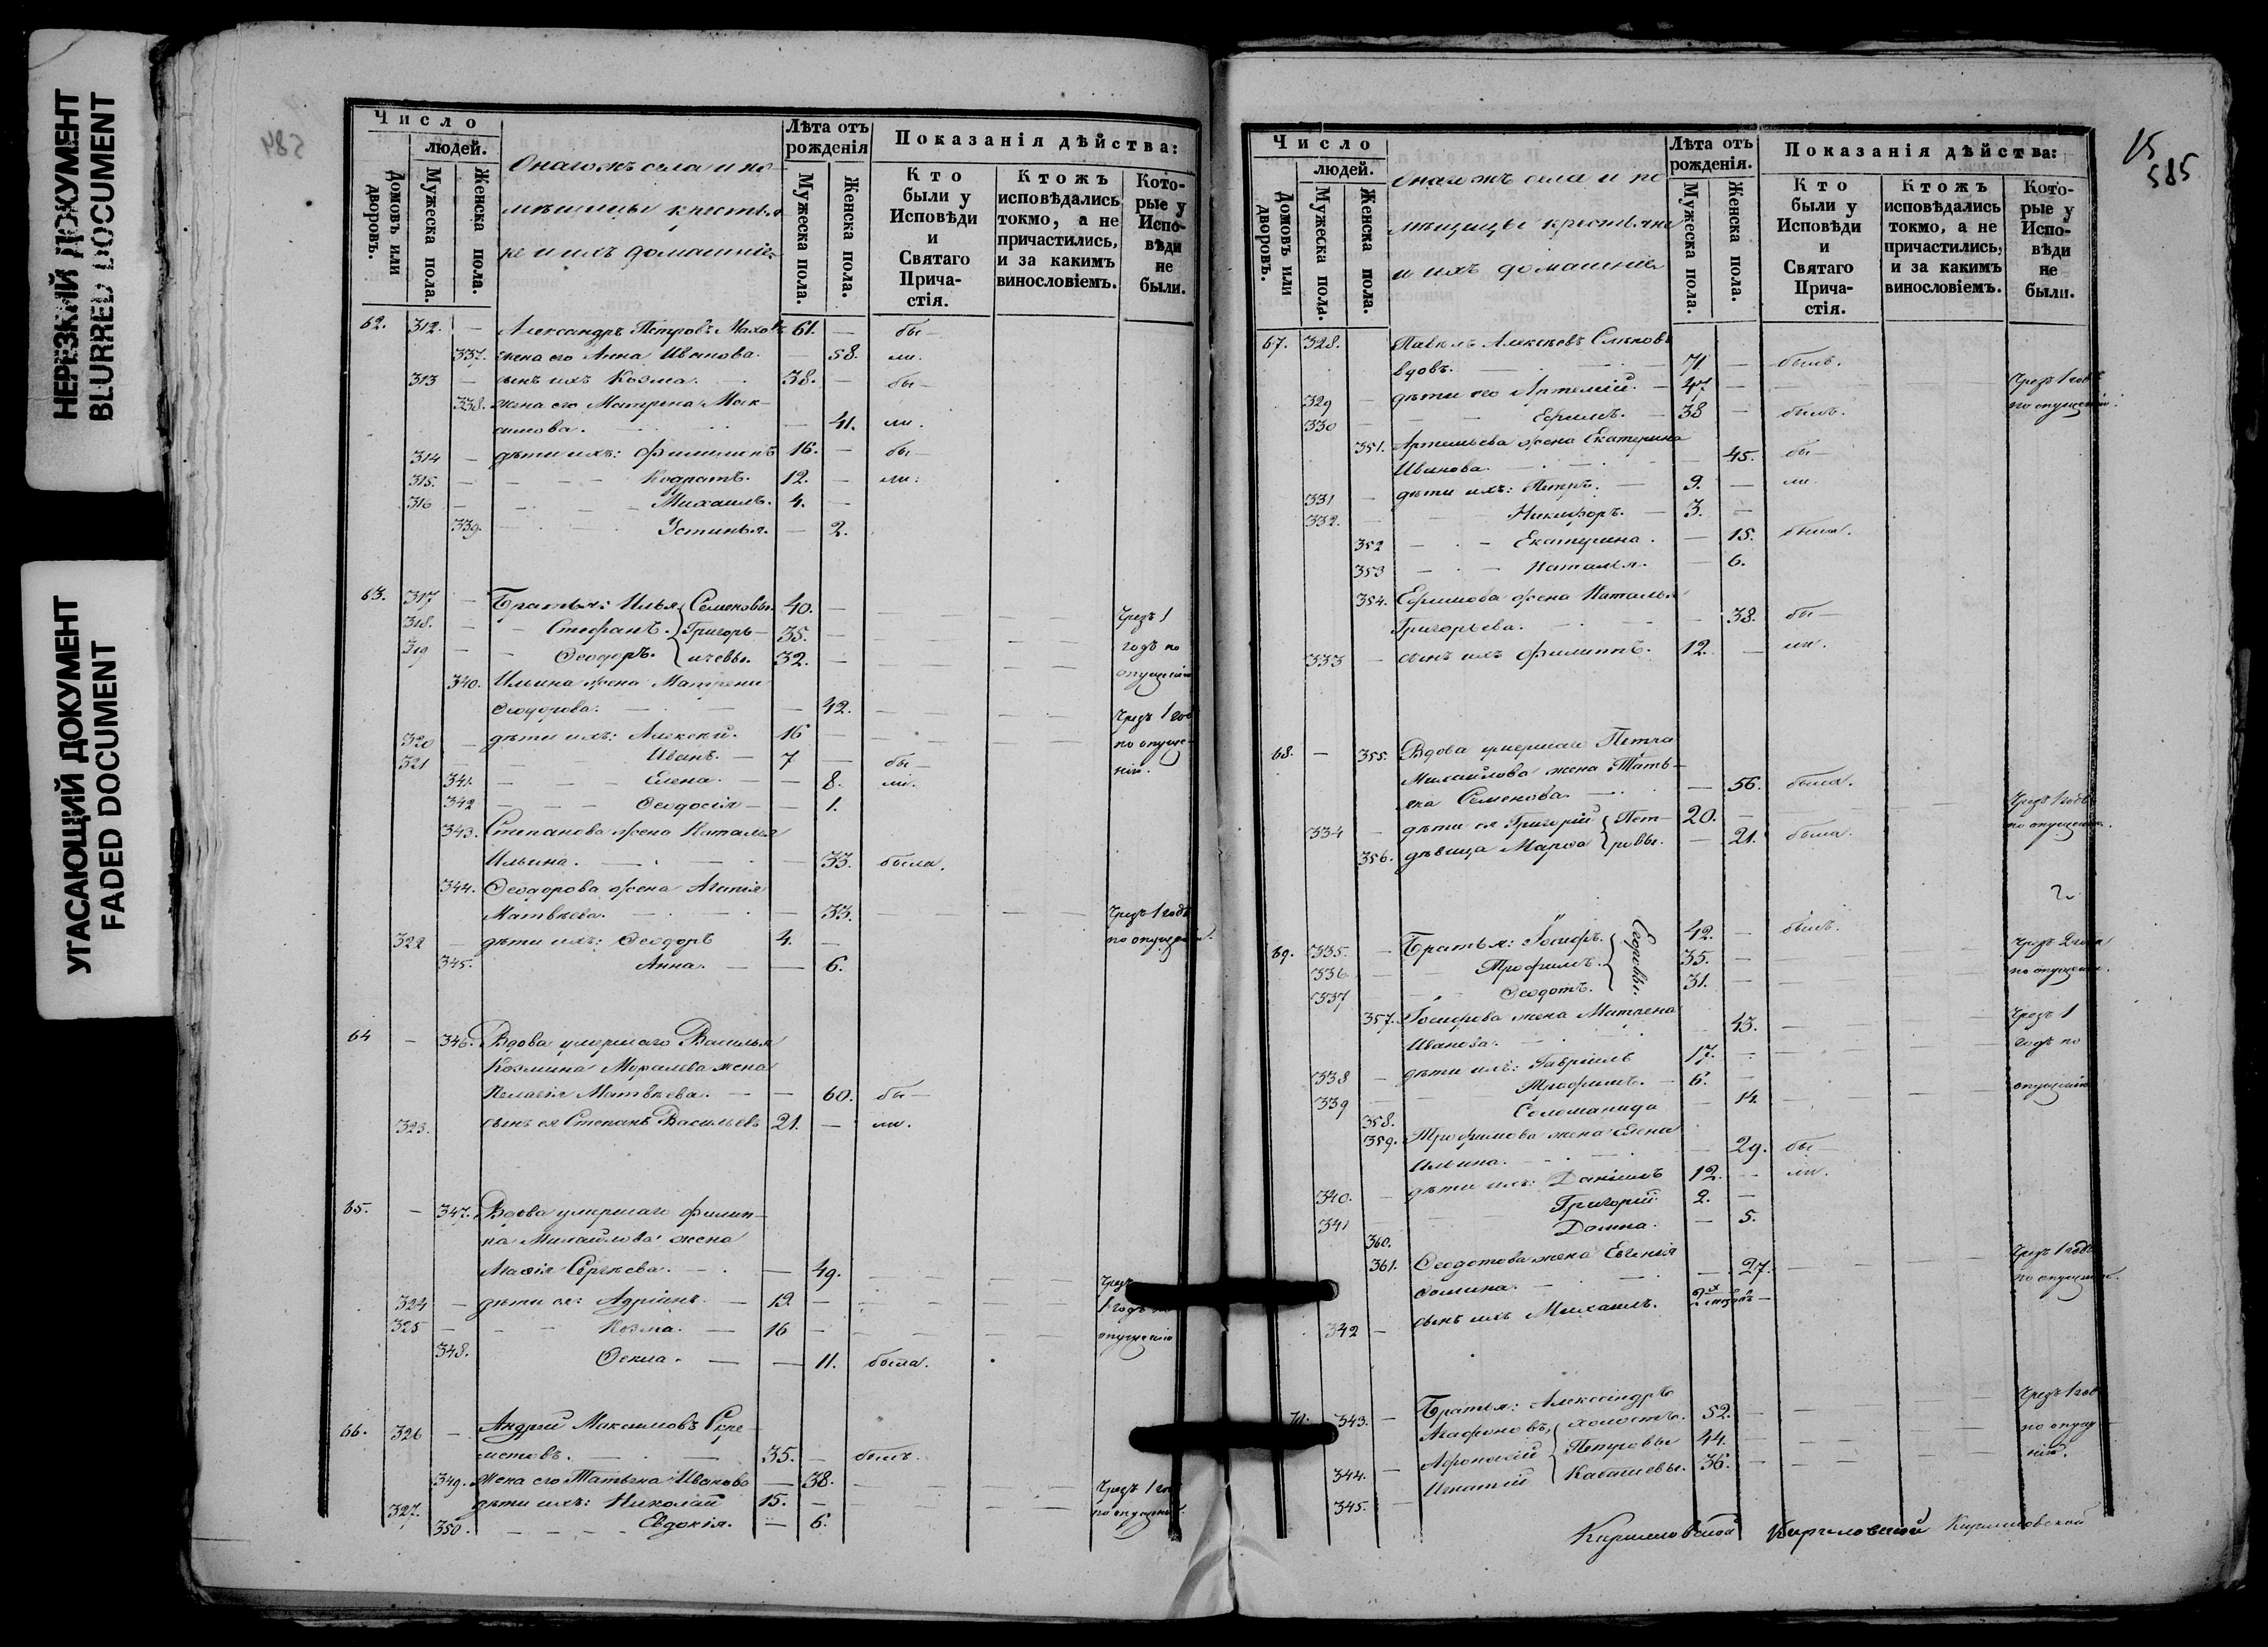 НЕРЕЗКИЙ ДОКУМЕНТ
BLURRED DOCUMENT
УГАСАЮЩИЙ ДОКУМЕНТ
FADED DOCUMENT
584
Число
людей.
Домовъ или дворовъ.
Мужеска пола.
Женска пола.
Онагожъ села и по-
мѣщицы крестья
не и ихъ домашніе
Лѣта отъ рожденія
Мужеска пола.
Женска пола.
Показанія дѣйства:
Кто были у Исповѣди и Святаго Прича-стія.
Ктожъ исповѣдались токмо, а не причастились, и за какимъ винословіемъ.
Кото-рые у Испо-вѣди не были.
62. 312. — Александръ Петровъ 61. — бы—
337. жена его Анна Иванова. — 58. ли.
313 — сынъ ихъ Козма. 38. — бы—
338. жена его Матрена Мак-
симова. — 41. ли.
314 — дѣти ихъ: Филимонъ 16. — бы—
315. — Кодратъ. 12. — ли.
316 — Михаилъ. 4. —
339. Устинья. — 2.
63. 317 — Братья: Илья Семеновы. 40. —
318. — Стефанъ. Григорь— 35. — Чрезъ 1
319 — Ѳеодоръ. ичевы. 32. — годъ по
340. Ильина жена Матрена опущенію
Ѳеодорова. — 42. Чрезъ 1 год
320 — дѣти ихъ: Алексѣй. 16 — по опуще-
321 — Иванъ. — 7 — бы— нію.
341. — Елена. — — 8. ли.
342 — Ѳеодосія — — 1.
343. Степанова жена Наталья
Ильина. — 33. была.
344. Ѳеодорова жена Агапія
Матвѣева. — 33. Чрезъ 1 годъ
322 — дѣти ихъ: Ѳеодоръ 4. — по опущенію.
345. Анна. — — 6.
64 — 346. Вдова умершаго Василья
Козмина жена
Пелагія Матвѣева. — — 60. бы—
323. сынъ ея Степанъ Васильевъ 21. — ли.
65. — 347. Вдова умершаго Филип—
па Михайлова жена
Сергѣева. — — 49. Чрезъ
324 — дѣти ея: Адріанъ. — 19. — 1 годъ по
325 — Козма. — 16 — опущенію
348. Ѳекла. — — 11. была.
66. 326 — Андрей Максимовъ
35. — былъ.
349. Жена его Татьяна Иванова — 38. Чрезъ 1 год
327. дѣти ихъ: Николай 15. — по опущенію.
350. Евдокія. — 6.
15
585
Число
людей.
Домовъ или дворовъ.
Мужеска пола.
Женска пола.
Онагожъ села и по
мѣщицы крестьяне
и ихъ домашніе
Лѣта отъ рожденія.
Мужеска пола.
Женска пола.
Показанія дѣйства:
Кто были у Исповѣди и Святаго Прича-стія.
Ктожъ исповѣдались токмо, а не причастились, и за какимъ винословіемъ.
Кото-рые у Испо-вѣди не были.
67. 328. Павелъ Алексѣевъ
вдовъ. 71 — былъ.
329 — дѣти его Артемій. — 47. — Чрезъ 1 годъ
330 — Ефимъ. — 38 — былъ. по опущенію.
351. Артемьева жена Екатерина
Иванова. — 45. бы—
331 — дѣти ихъ: Петръ. — 9. — ли.
332. Никифоръ. — 3. —
352 — Екатерина. — 15. была.
353 — Наталья. — 6.
354. Ефимова жена Наталья
Григорьева. — 38. бы—
333 — сынъ ихъ Филиппъ. 12. — ли.
68. — 355. Вдова умершаго Петра
Михайлова жена Тать—
яна Семенова. — 56. была.
334 — дѣти ея Григорій Пет— 20. — Чрезъ 1 годъ
356. дѣвица Марѳа ровы. — 21. была. по опущенію.
2
69. 335. — Братья: Іосифъ. Егоровы. 42. — былъ.
336 — Трофимъ. 35. — Чрезъ 2 года
337 — Ѳеодотъ. 31. — по опущенію.
357. Іосифова жена Матрена
Иванова. 43. Чрезъ 1
338 — дѣти ихъ: Гавріилъ 17. — годъ по
339 — Трофимъ. — 6. — опущенію
358. Соломанида — 14.
359. Трофимова жена Елена
Ильина. — 29. бы—
340. — дѣти ихъ: Даніилъ 12. — ли.
341 — Григорій 2. —
360. Домна. — 5.
361. Ѳеодотова жена Евгенія
Ѳомина. — 27. Чрезъ 1 годъ
342 — сынъ ихъ Михаилъ. по опущенію.
70. 343. — Братья: Александръ
Агафоновъ, холостъ. 52. Чрезъ 1 год
344. — Афонасій Петровы 44. по опуще
345. — Игнатій 36. нію.
Кириловской Кириловской Кириловской